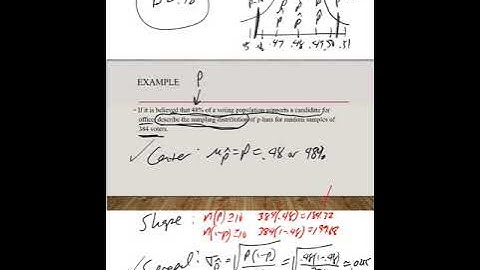 .47 .48 .49 .50 .51
EXAMPLE P
• If it is believed that 48% of a voting population supports a candidate for
office, describe the sampling distribution of p-hats for random samples of
384 voters.
✓ Center: μp̂ = p = .48 or 48%
Shape: n(p) ≥ 10 384(.48) = 184.32
n(1-p) ≥ 10 384(1-.48) = 199.68
σp̂ = √p(1-p) = √.48(1-.48)